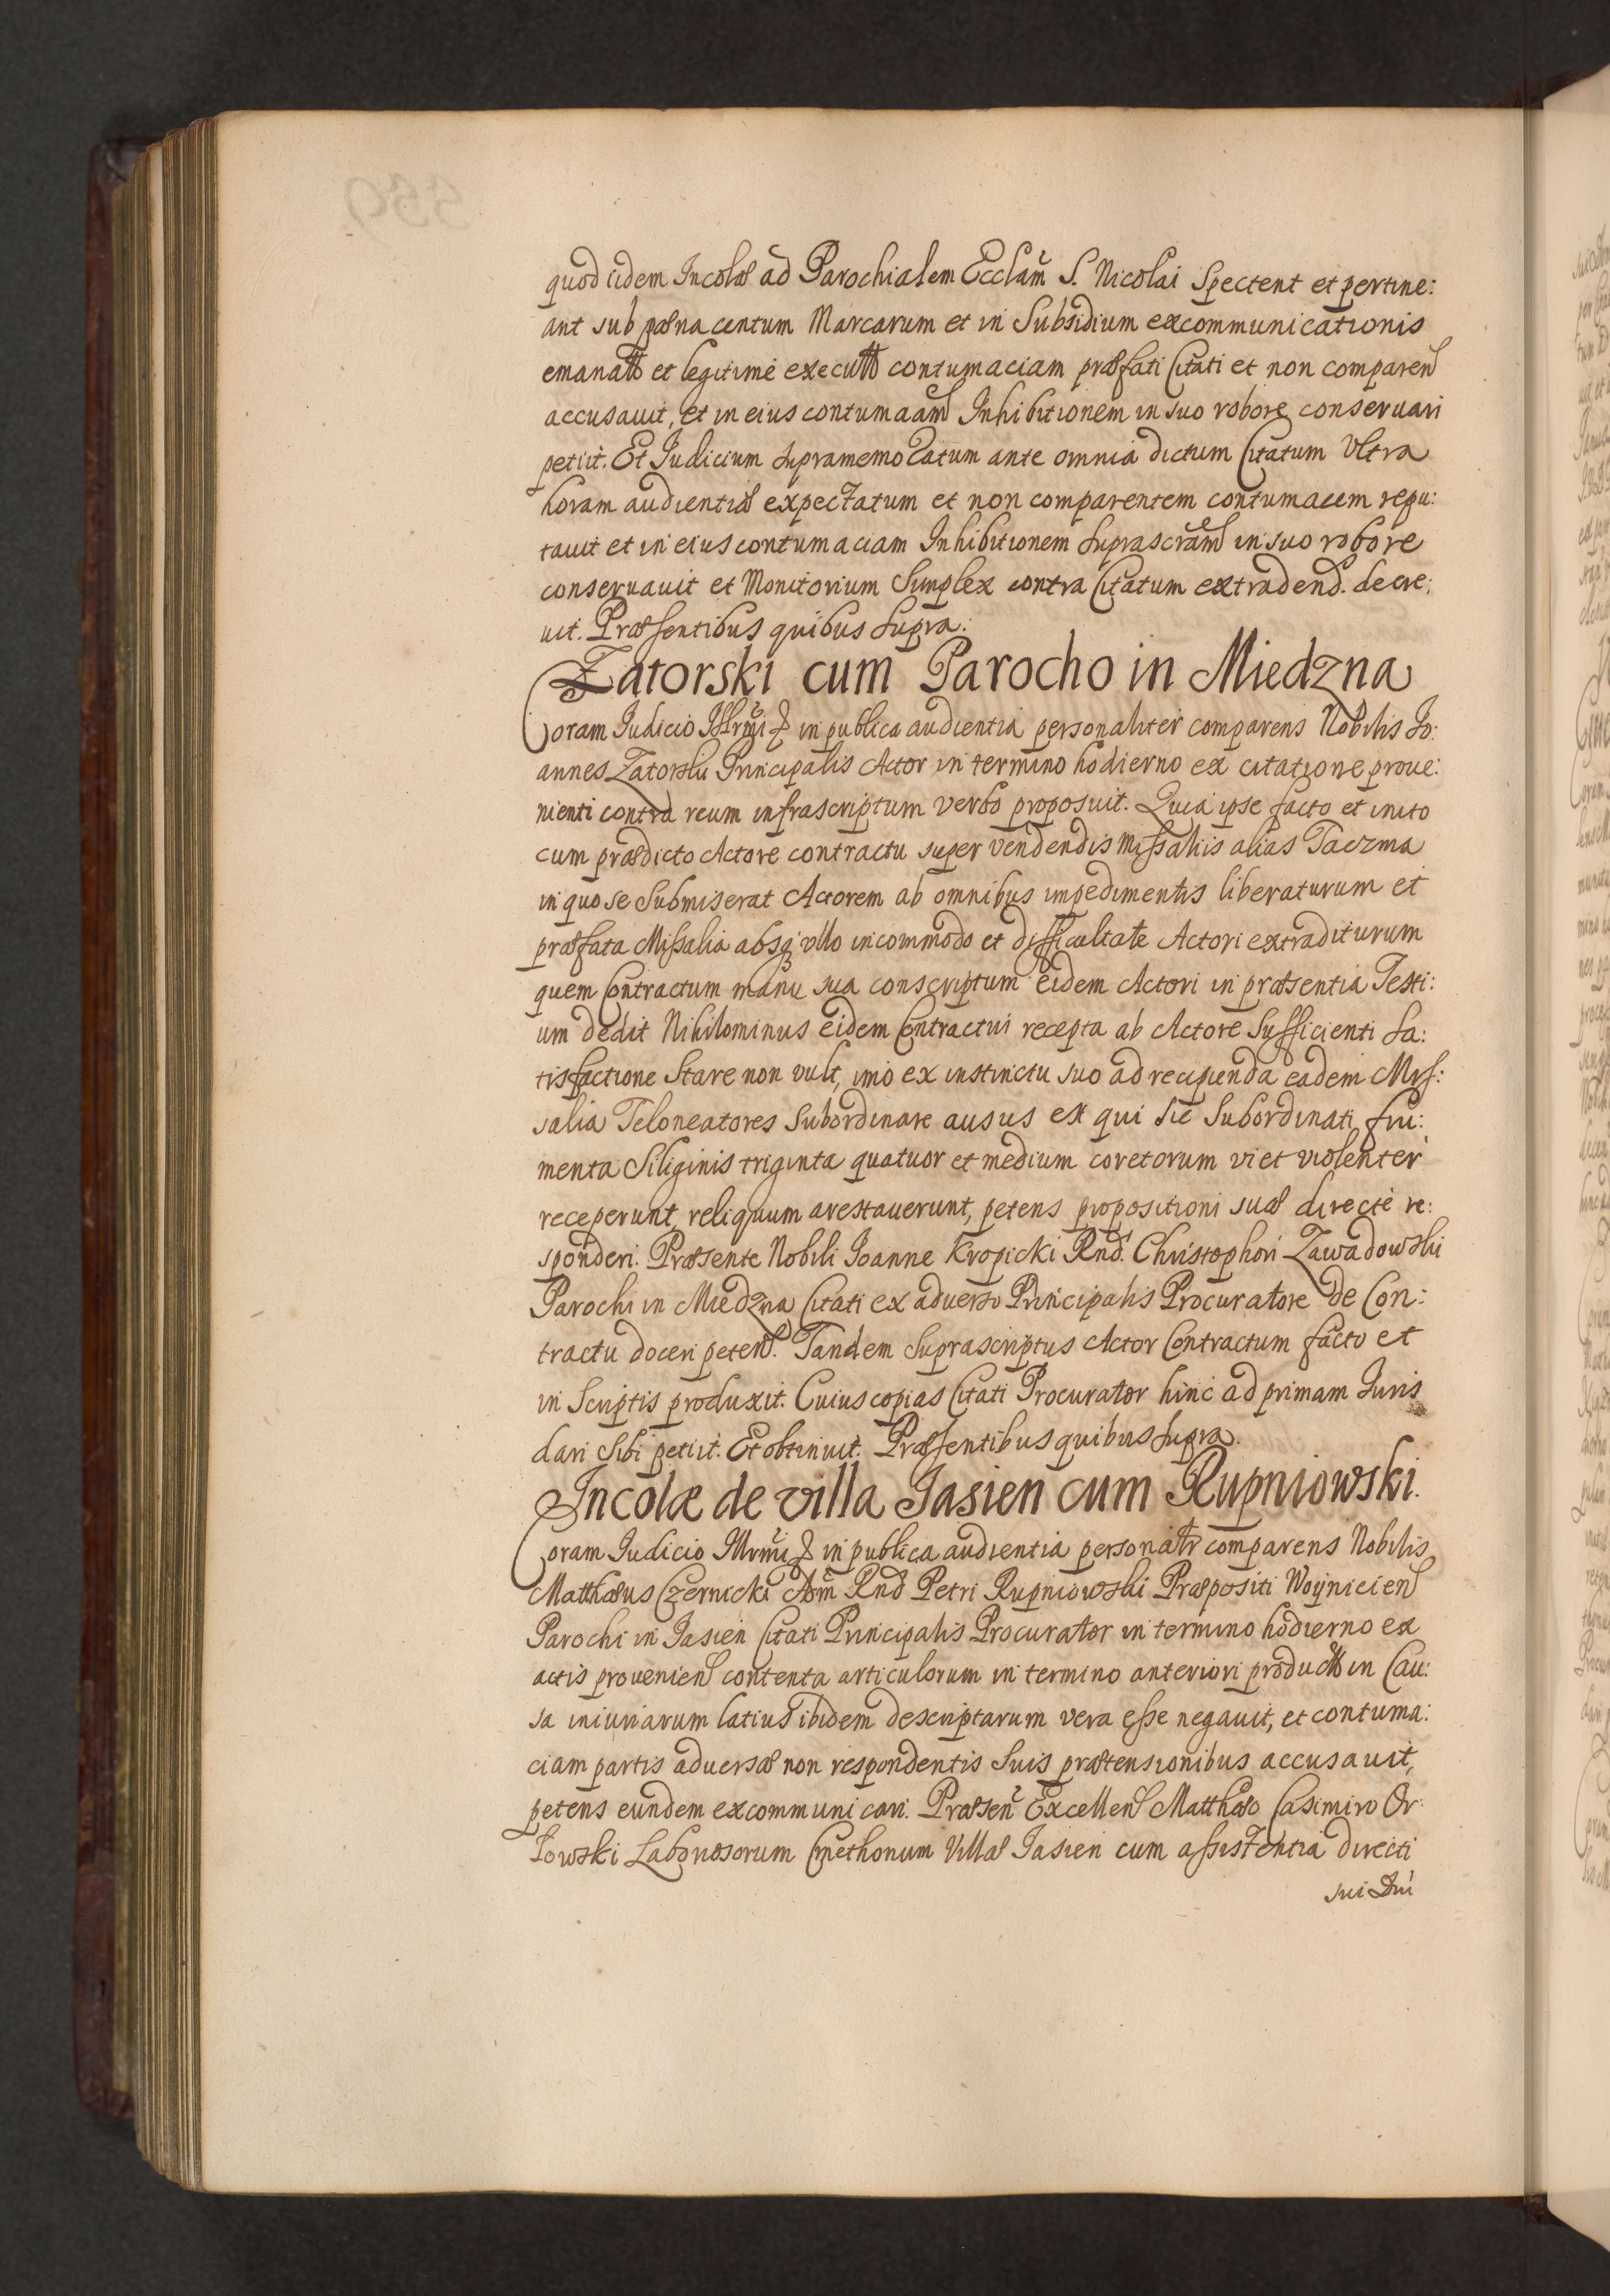 quod iidem Incolæ ad Parochialem Ecclam̃ S. Nicolai Spectent et pertine:
ant sub pœna centum Marcarum et in Subsidium excommunicationis
emanatt et legitimè executt contumaciam præfati Citati et non comparen
accusauit, et in eius contumaciam Inhibitionem in suo robore conseruari
petiit. Et Iudicium supramemoratum ante omnia dictum Citatum Vltra
horam audientiæ expectatum et non comparentem contumacem repu:
tauit et in eius contumaciam Inhibitionem Suprascram in suo robore
conseruauit et Monitorium Simplex contra Citatum extradend. decre:
uit. Præsentibus quibus Supra.
Zatorski cum Parocho in Miedzna
Coram Iudicio Illrmi & in publica audientia personaliter comparens Nobilis Jo:
annes Zatorski Principalis Actor in termino hodierno ex citatione proue:
nienti contra reum infrascriptum verbo proposuit. Quia ipse facto et inito
cum prædicto Actore contractu super vendendis Missaliis alias Taczma
in quo se Submiserat Actorem ab omnibus impedimentis liberaturum et
præfata Missalia absq vllo incommodo et difficultate Actori extraditurum
quem Contractum manu sua conscriptum eidem Actori in præsentia Testi:
um dedit Nihilominus eidem Contractui recepta ab Actore Sufficienti Sa:
tisfactione Stare non vult, imo ex instinctu suo ad recipienda eadem Mis:
salia Teloneatores Subordinare ausus est qui sic Subordinati fru:
menta Siliginis triginta quatuor et medium coretorum vi et violenter
receperunt, reliquum arestauerunt, petens propositioni suæ directè re:
sponderi. Præsente Nobili Joanne Kropicki Rnd. Christophori Zawadowski
Parochi in Miedzna Citati ex aduerso Principalis Procuratore de Con:
tractu doceri peten. Tandem Suprascriptus Actor Contractum facto et
in Scriptis produxit. Cuius copias Citati Procurator hinc ad primam Iuris
dari Sibi petiit. Et obtinuit. Præsentibus quibus Supra.
Incolæ de villa Jasien cum Rupniowski.
Coram Iudicio Illrmi & in publica audientia personatr comparens Nobilis
Matthæus Czernicki Adm̃ Rnd Petri Rupniowski Præpositi Woynicien
Parochi in Jasien Citati Principalis Procurator in termino hodierno ex
actis prouenien contenta articulorum in termino anteriori productt in Cau:
sa iniuriarum latius ibidem descriptarum vera esse negauit, et contuma:
ciam partis aduersæ non respondentis Suis prætensionibus accusauit,
petens eundem excommunicari. Præsen Excellen Matthæo Casimiro Or:
łowski Laboriosorum Cmethonum Villæ Jasien cum assistentia directi
sui Dni